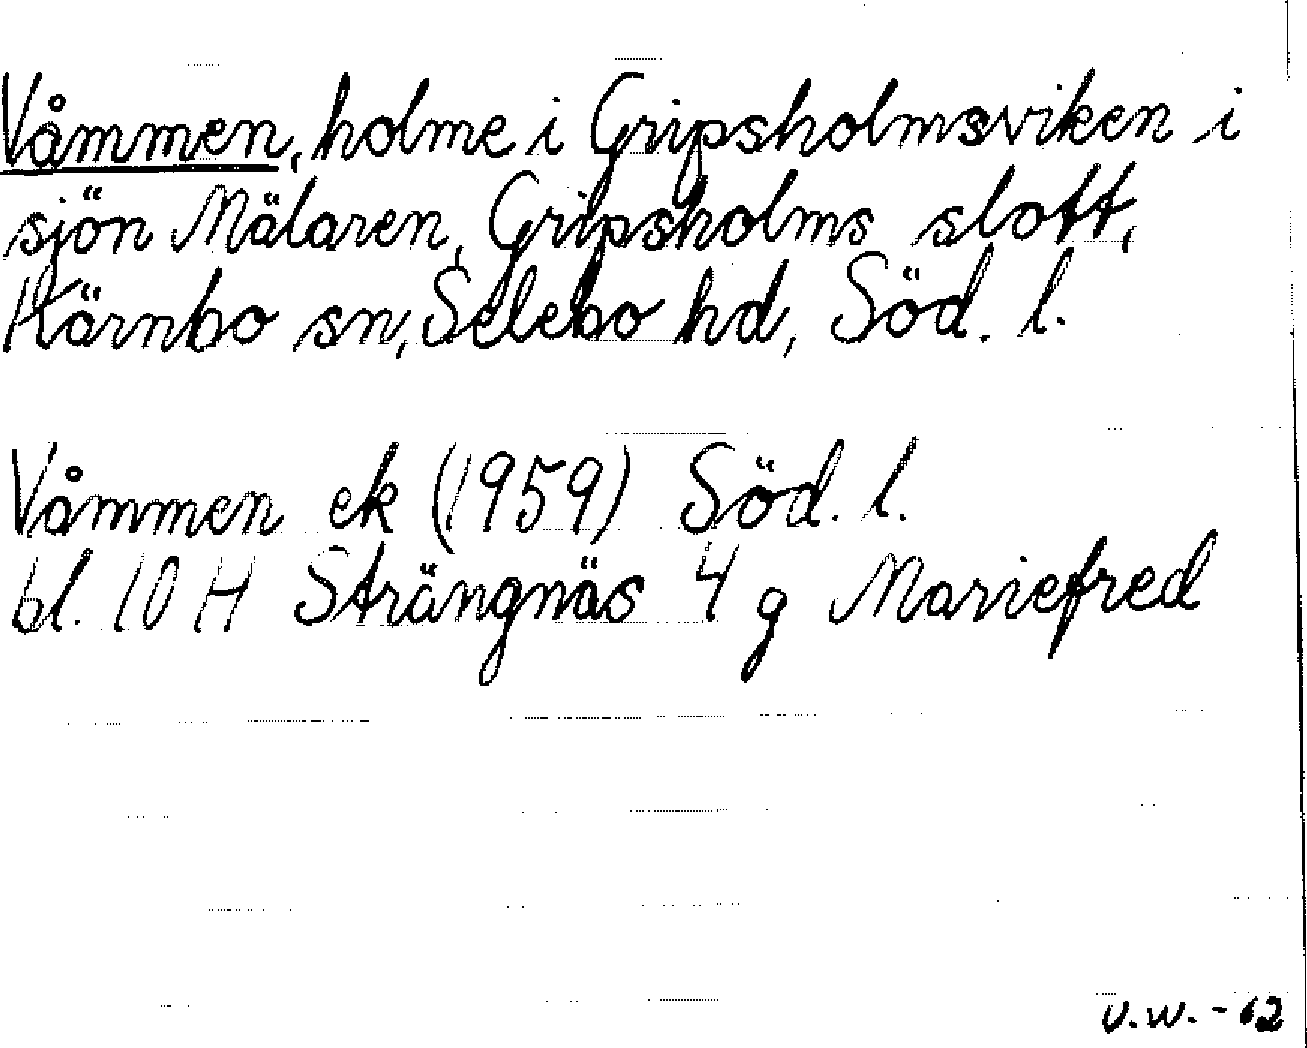 Våmmen, holme i Gripsholmsviken i
sjön Mälaren, Gripsholms slott,
Kärnbo sn, Selebo hd, Söd. l.
Våmmen ek (1959) Söd. l.
bl. 10 H Strängnäs 4 g Mariefred
V.W. - 62